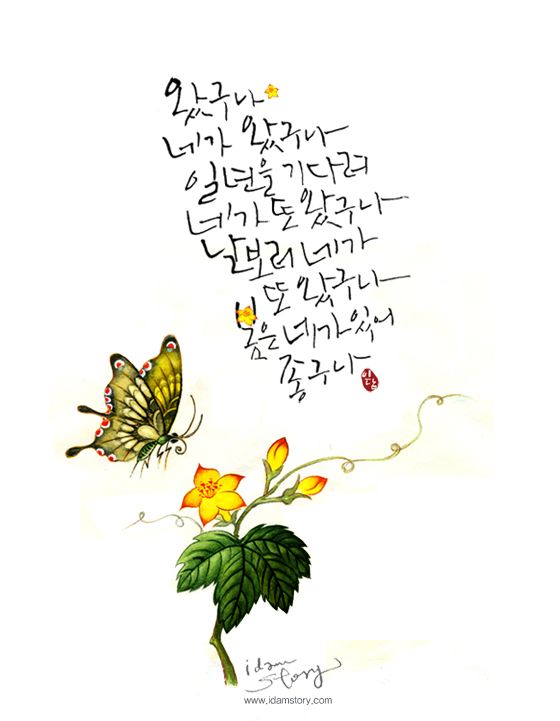 왔구나
네가 왔구나
일년을 기다려
네가 또 왔구나
날보러 네가
또 왔구나
봄은 네가 있어
좋구나
이담
idam
story
www.idamstory.com